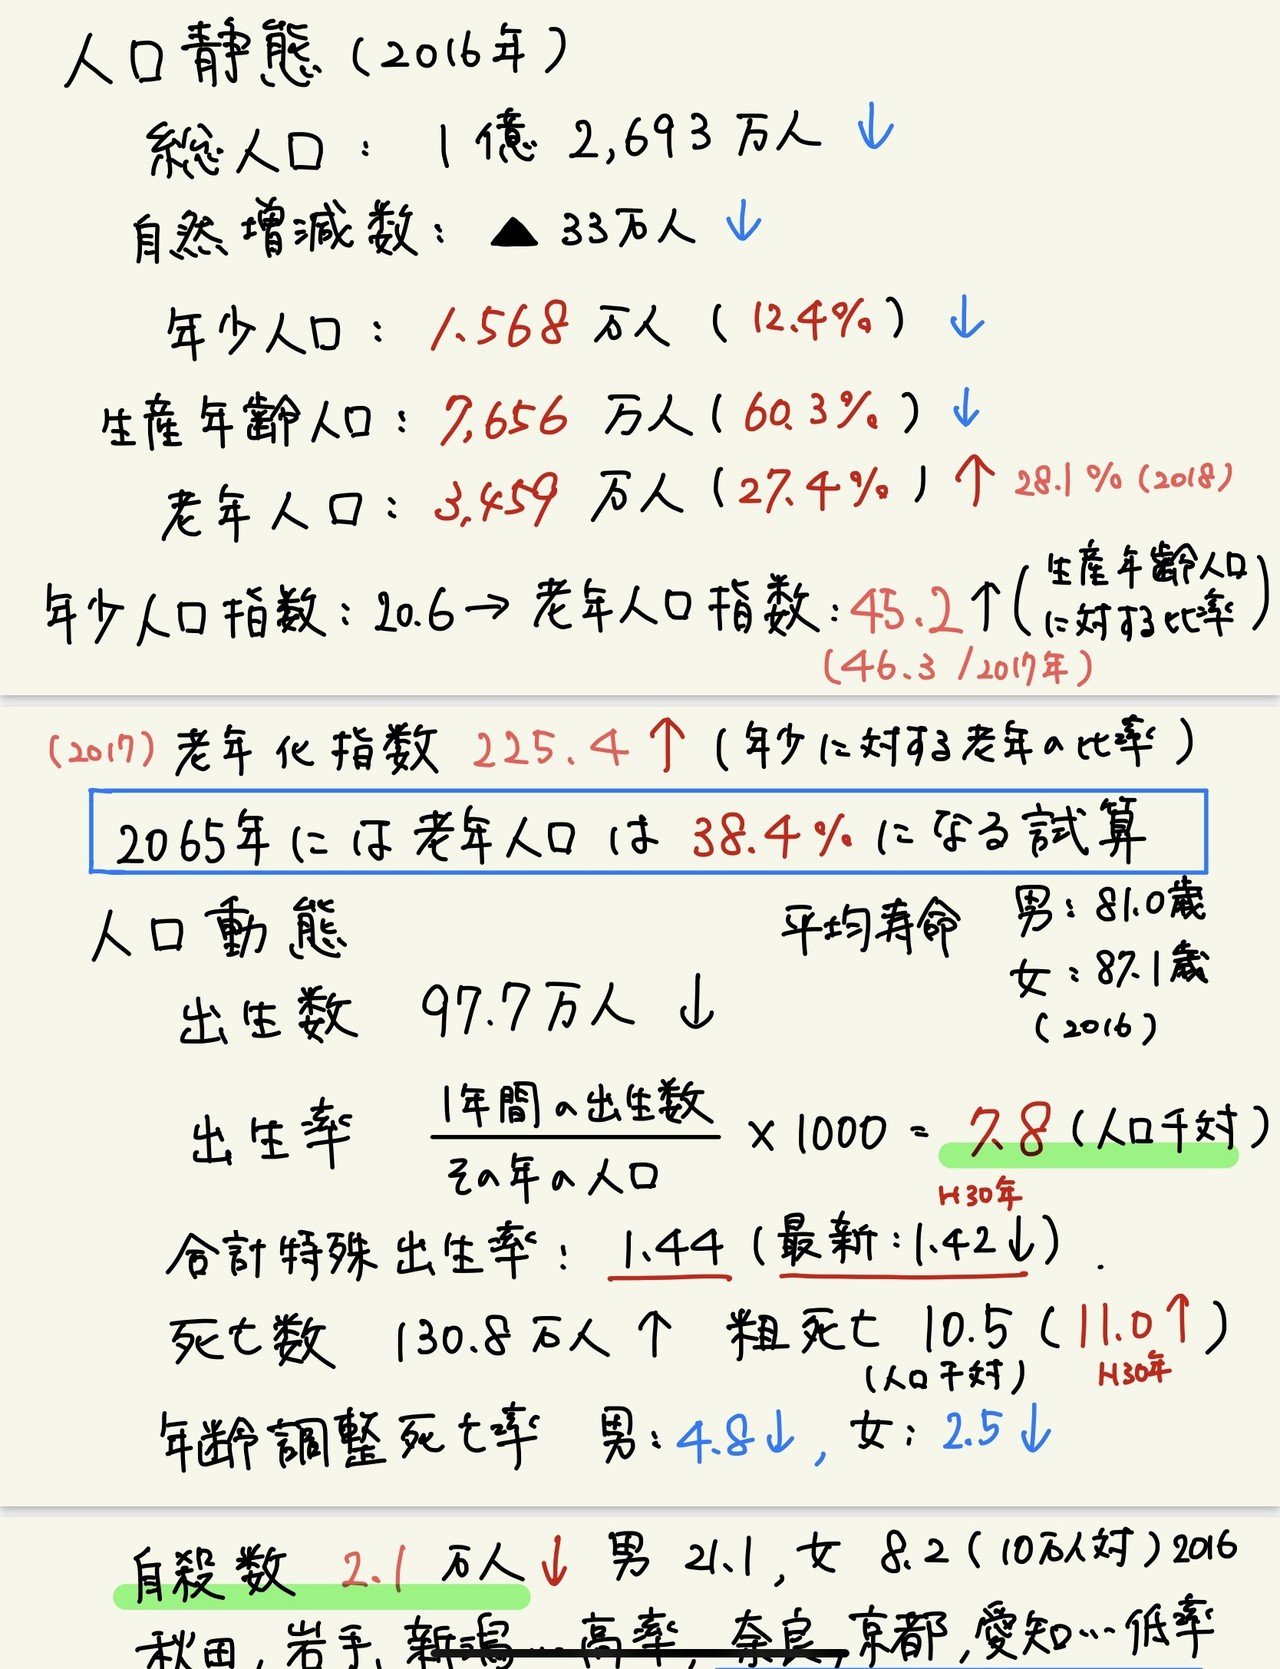 人口静態(2016年)
総人口: 1億 2,693万人 ↓
自然増減数: ▲ 33万人 ↓
年少人口: 1.568 万人 (12.4%) ↓
生産年齢人口: 7,656 万人 (60.3%) ↓
老年人口: 3,459 万人 (27.4%) ↑ 28.1% (2018)
年少人口指数: 20.6 → 老年人口指数: 45.2 ↑ (生産年齢人口
に対する比率)
(46.3 /2017年)
(2017) 老年化指数 225.4 ↑ (年少に対する老年の比率)
2065年には老年人口は 38.4% になる試算
人口動態 平均寿命 男: 81.0歳
女: 87.1歳
(2016)
出生数 97.7万人 ↓
出生率 1年間の出生数
その年の人口
× 1000 = 7.8 (人口千対)
H30年
合計特殊出生率: 1.44 (最新: 1.42↓).
死亡数 130.8万人 ↑ 粗死亡 10.5 (11.0↑)
(人口千対) H30年
年齢調整死亡率 男: 4.8↓, 女: 2.5↓
自殺数 2.1 万人 ↓ 男 21.1, 女 8.2 (10万人対) 2016
秋田, 岩手, 新潟…高率, 奈良, 京都, 愛知…低率